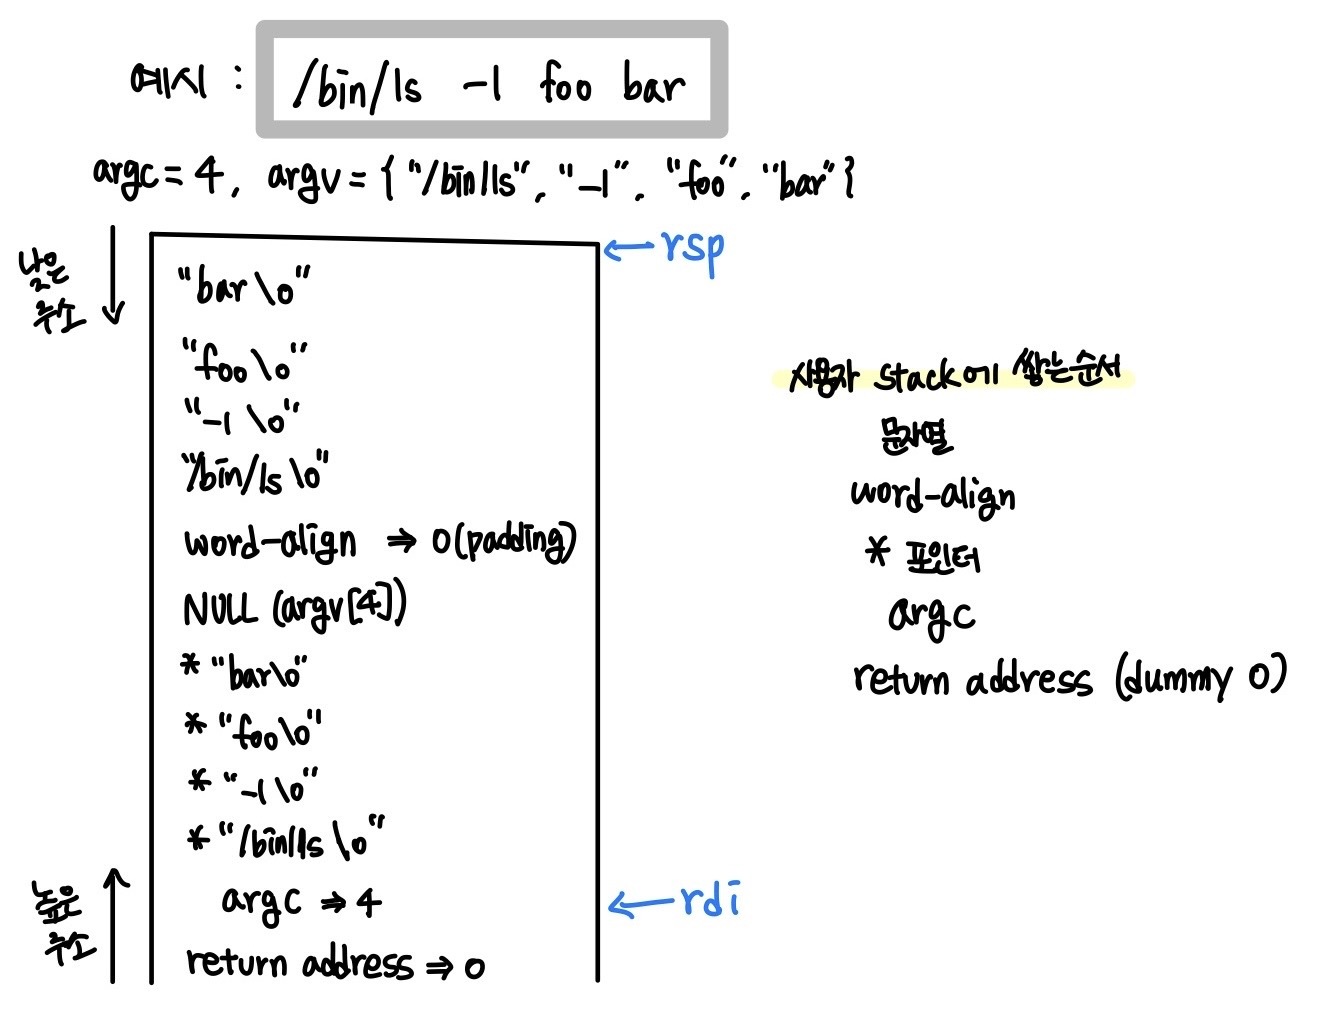 예시 : /bin/ls -l foo bar
argc = 4, argv = { "/bin/ls", "-l", "foo", "bar" }
낮은 주소
← rsp
"bar\0"
"foo\0"
"-l\0"
"/bin/ls\0"
word-align ⇒ 0(padding)
NULL (argv[4])
* "bar\0"
* "foo\0"
* "-l\0"
* "/bin/ls\0"
argc ⇒ 4
← rdi
return address ⇒ 0
높은 주소
사용자 stack에 쌓는순서
문자열
word-align
* 포인터
argc
return address (dummy 0)